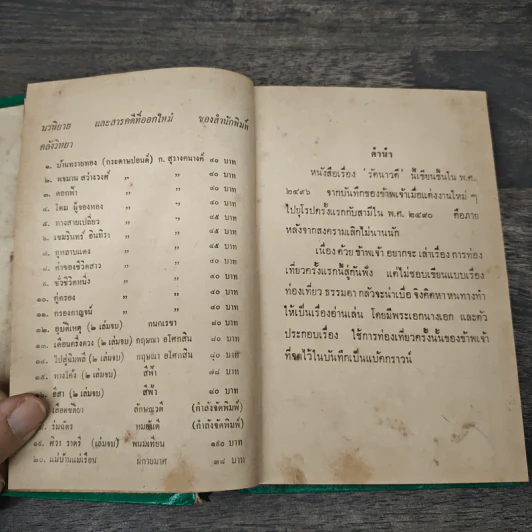 นวนิยาย และสารคดีที่ออกใหม่ ของสำนักพิมพ์
คลังวิทยา
๑. บ้านทรายทอง (กระดาษปอนด์) ก. สุรางคนางค์ ๘๐ บาท
๒. พจมาน สว่างวงศ์ " ๘๐ บาท
๓. ดอกฟ้า " ๘๐ บาท
๔. โดม ผู้จองหอง " ๔๕ บาท
๕. ทางสายเปลี่ยว " ๔๕ บาท
๖. เขมรินทร์ อินทิรา " ๔๕ บาท
๗. กุหลาบแดง " ๔๕ บาท
๘. ค่าของชีวิตสาว " ๘๐ บาท
๙. ชั่วชีวิตหนึ่ง " ๘๐ บาท
๑๐. คู่ครอง " ๘๐ บาท
๑๑. กรองกาญจน์ " ๘๐ บาท
๑๒. อุบัติเหตุ (๒ เล่มจบ) กนกเรขา ๘๐ บาท
๑๓. เดือนครึ่งดวง (๒ เล่มจบ) กฤษณา อโศกสิน ๘๐ บาท
๑๔. ไปสู่นิมพลี (๒ เล่มจบ) กฤษณา อโศกสิน ๘๐ บาท
๑๕. ทางโค้ง (๒ เล่มจบ) สีฟ้า ๗๘ บาท
อีสา (๒ เล่มจบ) สีฟ้า ๘๐ บาท
เลือดขัตติยา ลักษณวดี (กำลังจัดพิมพ์)
ร่มฉัตร ทมยันตี (กำลังจัดพิมพ์)
๑๙. ศิวา ราตรี (เล่มจบ) พนมเทียน ๑๙๐ บาท
๒๐. แม่บ้านแม่เรือน ๓๘ บาท
คำนำ
หนังสือเรื่อง 'รัตนาวดี' นี้เขียนขึ้นใน พ.ศ.
๒๔๙๖ จากบันทึกของข้าพเจ้าเมื่อแต่งงานใหม่ ๆ
ไปยุโรปครั้งแรกกับสามีใน พ.ศ. ๒๔๙๐ คือภาย
หลังจากสงครามเลิกไม่นานนัก
เนื่องด้วยข้าพเจ้าอยากจะเล่าเรื่องการท่อง
เที่ยวครั้งแรกนี้สู่กันฟัง แต่ไม่ชอบเขียนแบบเรื่อง
ท่องเที่ยว ธรรมดา กลัวจะน่าเบื่อ จึงคิดหาหนทางทำ
ให้เป็นเรื่องอ่านเล่น โดยมีพระเอกนางเอก และตัว
ประกอบเรื่อง ใช้การท่องเที่ยวครั้งนั้นของข้าพเจ้า
ที่จดไว้ในบันทึกเป็นแบ๊คกราวน์